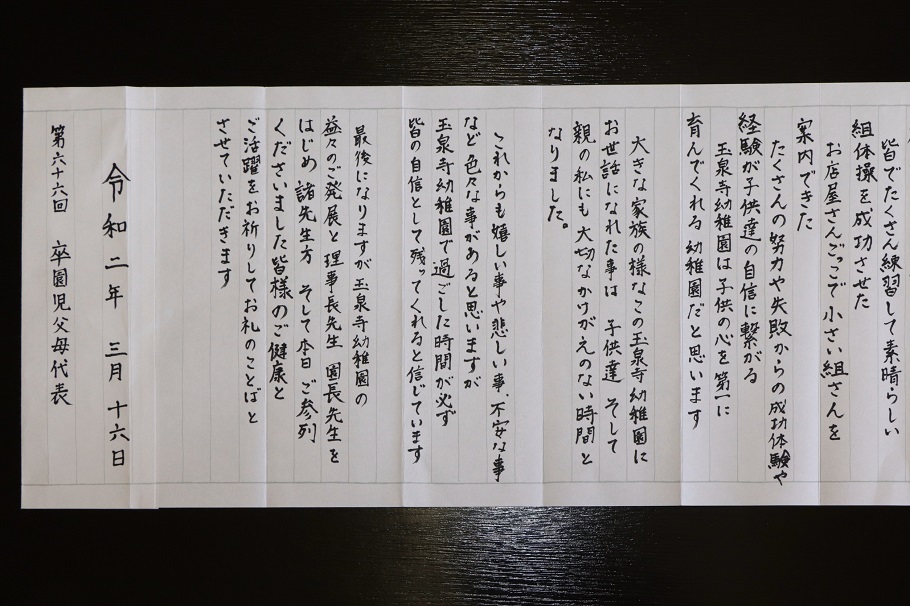 皆でたくさん練習して素晴らしい
組体操を成功させた
お店屋さんごっこで小さい組さんを
案内できた
たくさんの努力や失敗からの成功体験や
経験が子供達の自信に繋がる
玉泉寺幼稚園は子供の心を第一に
育んでくれる幼稚園だと思います
大きな家族の様なこの玉泉寺幼稚園に
お世話になれた事は 子供達 そして
親の私にも大切なかけがえのない時間と
なりました。
これからも嬉しい事や悲しい事、不安な事
など色々な事があると思いますが
玉泉寺幼稚園で過ごした時間が必ず
皆の自信として残ってくれると信じています
最後になりますが玉泉寺幼稚園の
益々のご発展と理事長先生 園長先生を
はじめ 諸先生方 そして本日 ご参列
くださいました皆様のご健康と
ご活躍をお祈りしてお礼のことばと
させていただきます
令和二年 三月 十六日
第六十六回 卒園児父母代表